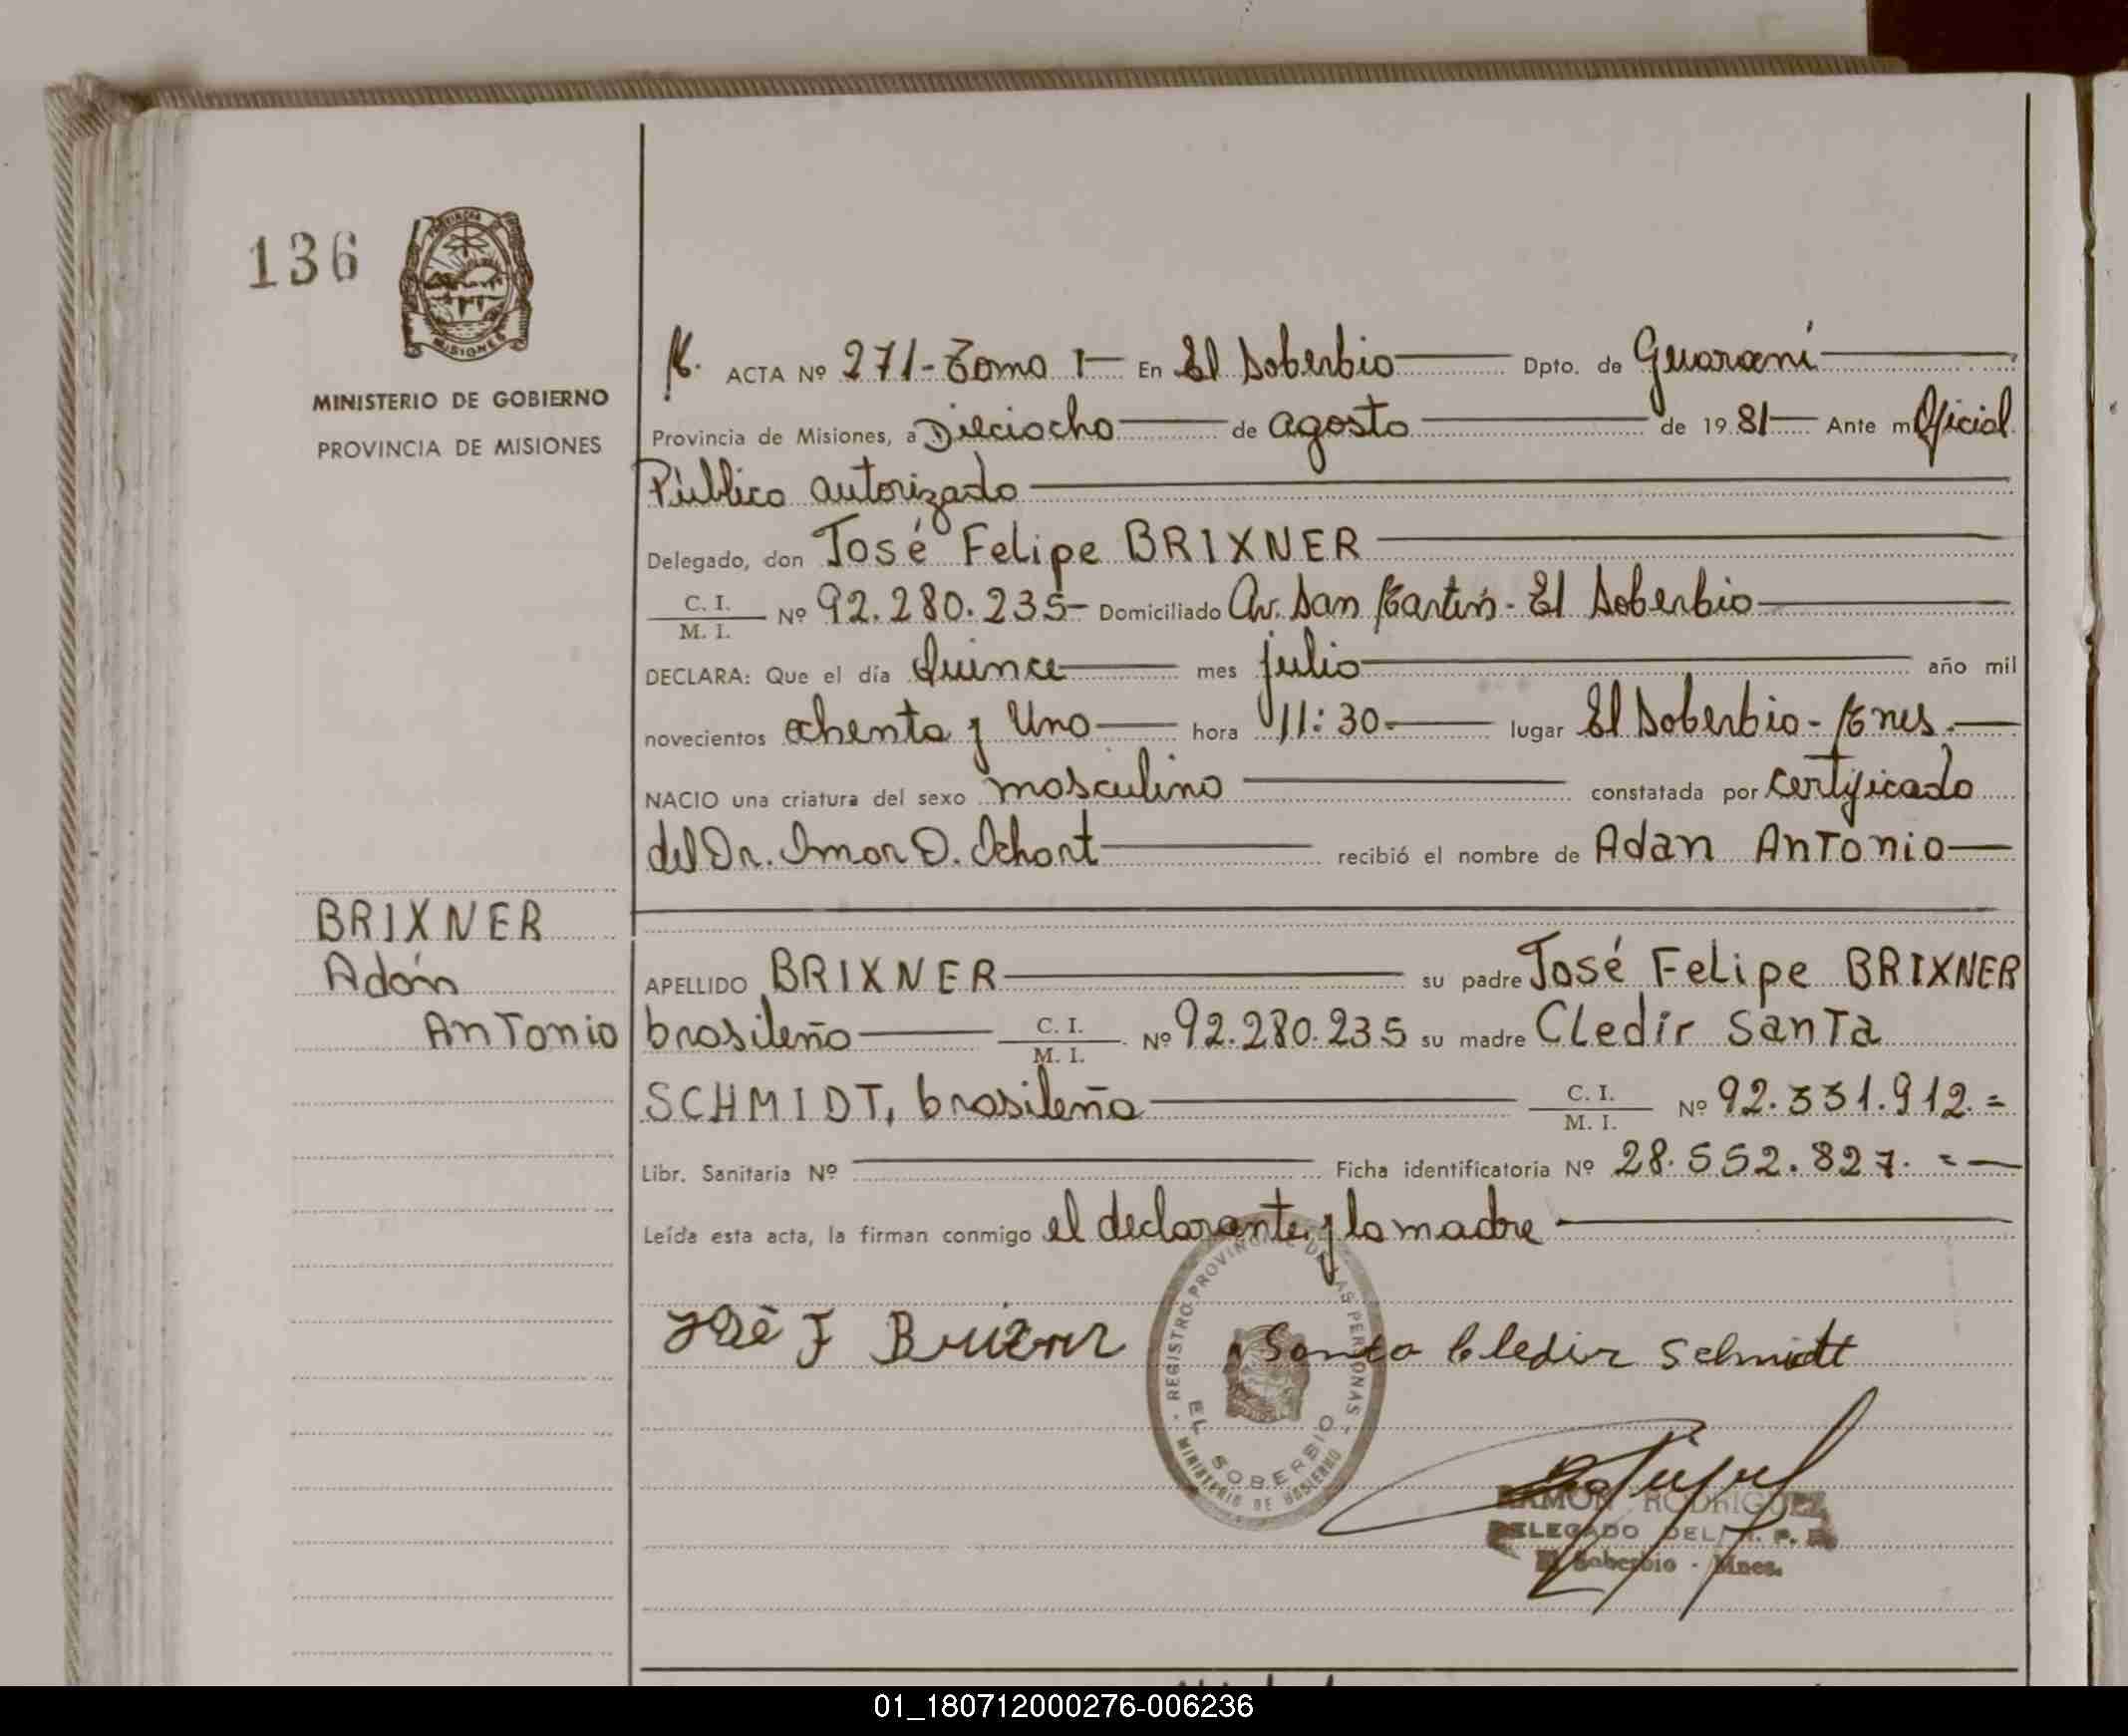 136
PROVINCIA DE
MISIONES
MINISTERIO DE GOBIERNO
PROVINCIA DE MISIONES
M. ACTA Nº 271-Tomo I En El Soberbio Dpto. de Guaraní
Provincia de Misiones, a Dieciocho de agosto de 1981 Ante m Oficial
Público autorizado
Delegado, don José Felipe BRIXNER
C. I.
M. I. Nº 92.280.235- Domiciliado Av. San Martín - El Soberbio
DECLARA: Que el día Quince mes julio año mil
novecientos ochenta y Uno hora 11:30.- lugar El Soberbio - Mnes.
NACIO una criatura del sexo masculino constatada por certificado
del Dr. Omar O. recibió el nombre de Adan Antonio
BRIXNER
Adán
Antonio
APELLIDO BRIXNER su padre José Felipe BRIXNER
brasileño C. I.
M. I. Nº 92.280.235 su madre Cledir Santa
SCHMIDT, brasileña C. I.
M. I. Nº 92.331.912.=
Libr. Sanitaria Nº Ficha identificatoria Nº 28.552.827. =
Leída esta acta, la firman conmigo el declarante y la madre
José F Brixner
Santa Cledir Schmidt
REGISTRO PROVINCIAL DE LAS PERSONAS
EL SOBERBIO
MINISTERIO DE GOBIERNO
RAMON RODRIGUEZ
DELEGADO DEL R. P. P.
El Soberbio - Mnes.
01_180712000276-006236